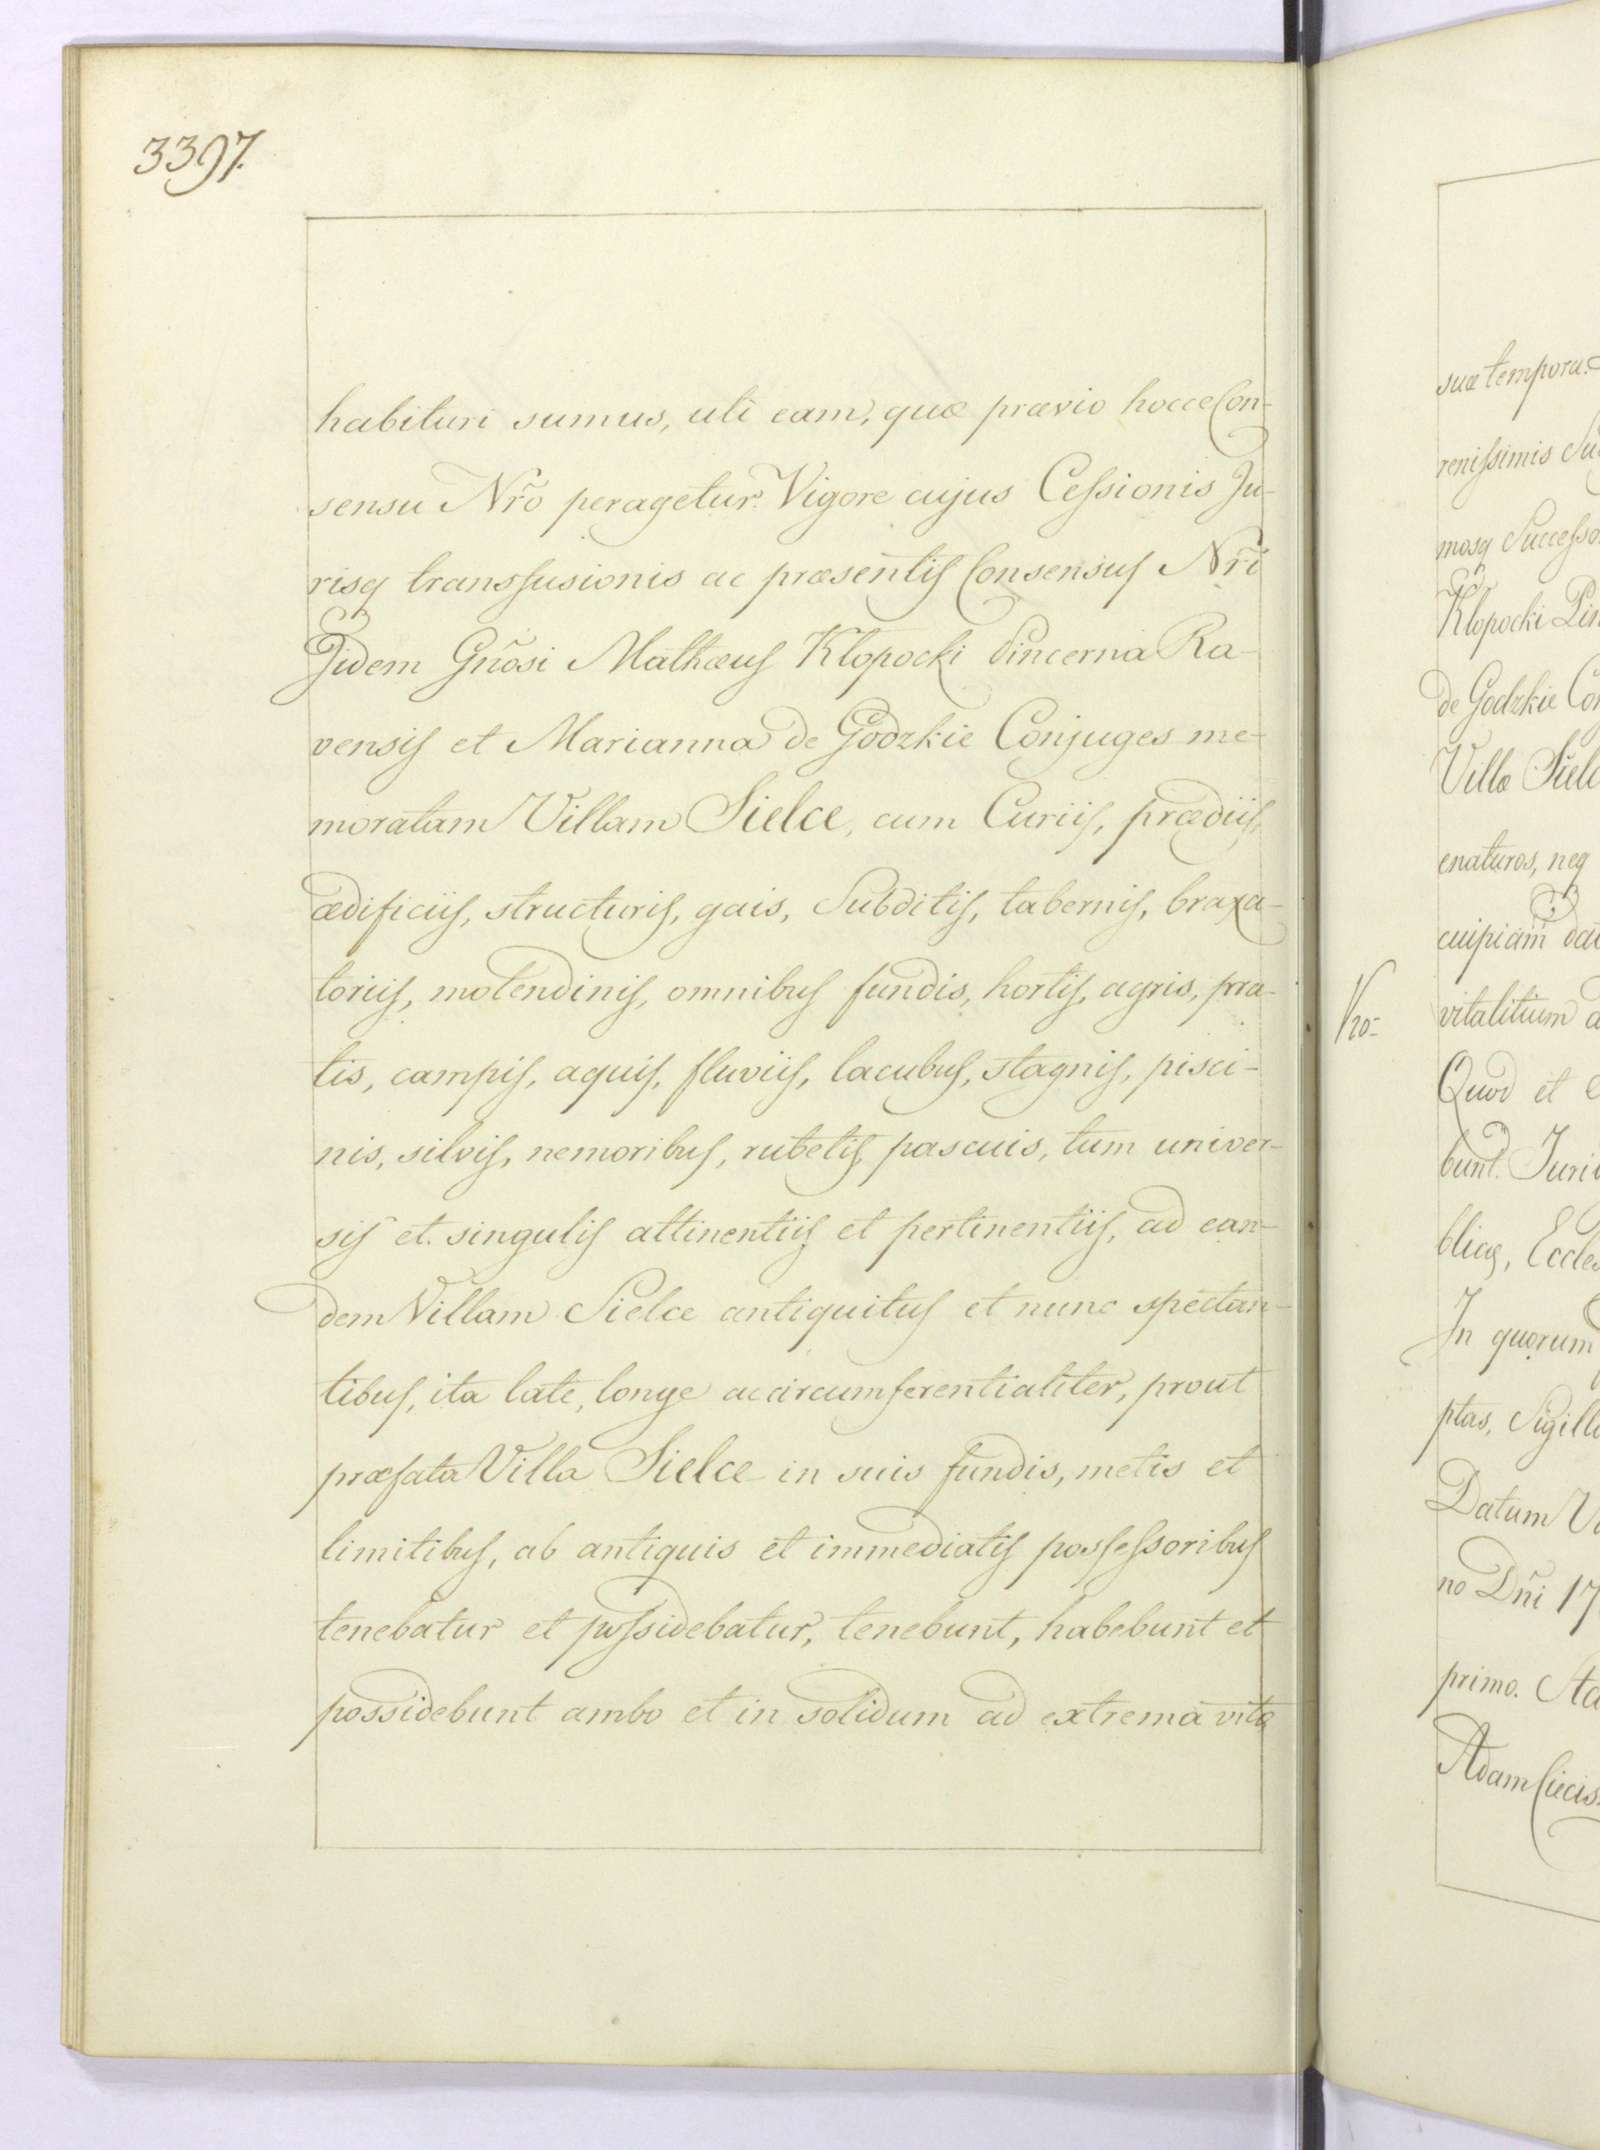 3397.
habituri sumus, uti eam, quæ prævio hocce Con-
sensu Nr̃o peragetur. Vigore cujus Cessionis Ju-
risq transfusionis ac præsentis Consensus Nr̃i
Iidem Gnõsi Mathæus Kłopocki Pincerna Ra-
vensis et Marianna de Godzkie Conjuges me-
moratam Villam Sielce, cum Curiis, prædiis,
ædificiis, structuris, gais, Subditis, tabernis, braxa-
toriis, molendinis, omnibus fundis, hortis, agris, pra-
tis, campis, aquis, fluviis, lacubus, stagnis, pisci-
nis, silvis, nemoribus, rubetis, pascuis, tum univer-
sis et singulis attinentiis et pertinentiis, ad ean-
dem Villam Sielce antiquitus et nunc spectan-
tibus, ita late, longe ac circumferentialiter, prout
præfata Villa Sielce in suis fundis, metis et
limitibus, ab antiquis et immediatis possessoribus
tenebatur et possidebatur, tenebunt, habebunt et
possidebunt ambo et in solidum ad extrema vitæ
suæ tempora.
renissimis
mosq Successo
Kłopocki Pin
de Godzkie Con
Villæ Siel
enaturos, neq
cuipiam̃ da
vitalitium a
Quod et
bunt. Juri
blicæ, Eccles
In quorum
ptas, Sigill
Datum V
no Dñi 17
primo.
Adam Ciecis